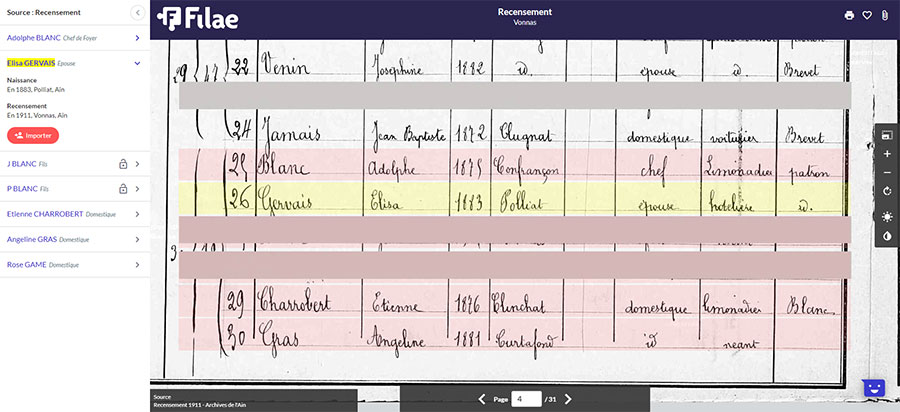 Source : Recensement
Adolphe BLANC Chef de Foyer
Elisa GERVAIS Epouse
Naissance
En 1883, Polliat, Ain
Recensement
En 1911, Vonnas, Ain
Importer
J BLANC Fils
P BLANC Fils
Etienne CHARROBERT Domestique
Angeline GRAS Domestique
Rose GAME Domestique
Filae
Recensement
Vonnas
22 Venin Joséphine 1882 id. épouse id. Brevet
24 Jamais Jean Baptiste 1872 Clugnat domestique voiturier Brevet
25 Blanc Adolphe 1875 Confrançon chef Limonadier patron
26 Gervais Elisa 1883 Polliat épouse hotelière id.
29 Charrobert Etienne 1876 domestique limonadier Blanc
30 Gras Angeline 1881 Curtafond id neant
Source
Recensement 1911 - Archives de l'Ain
Page 4 / 31